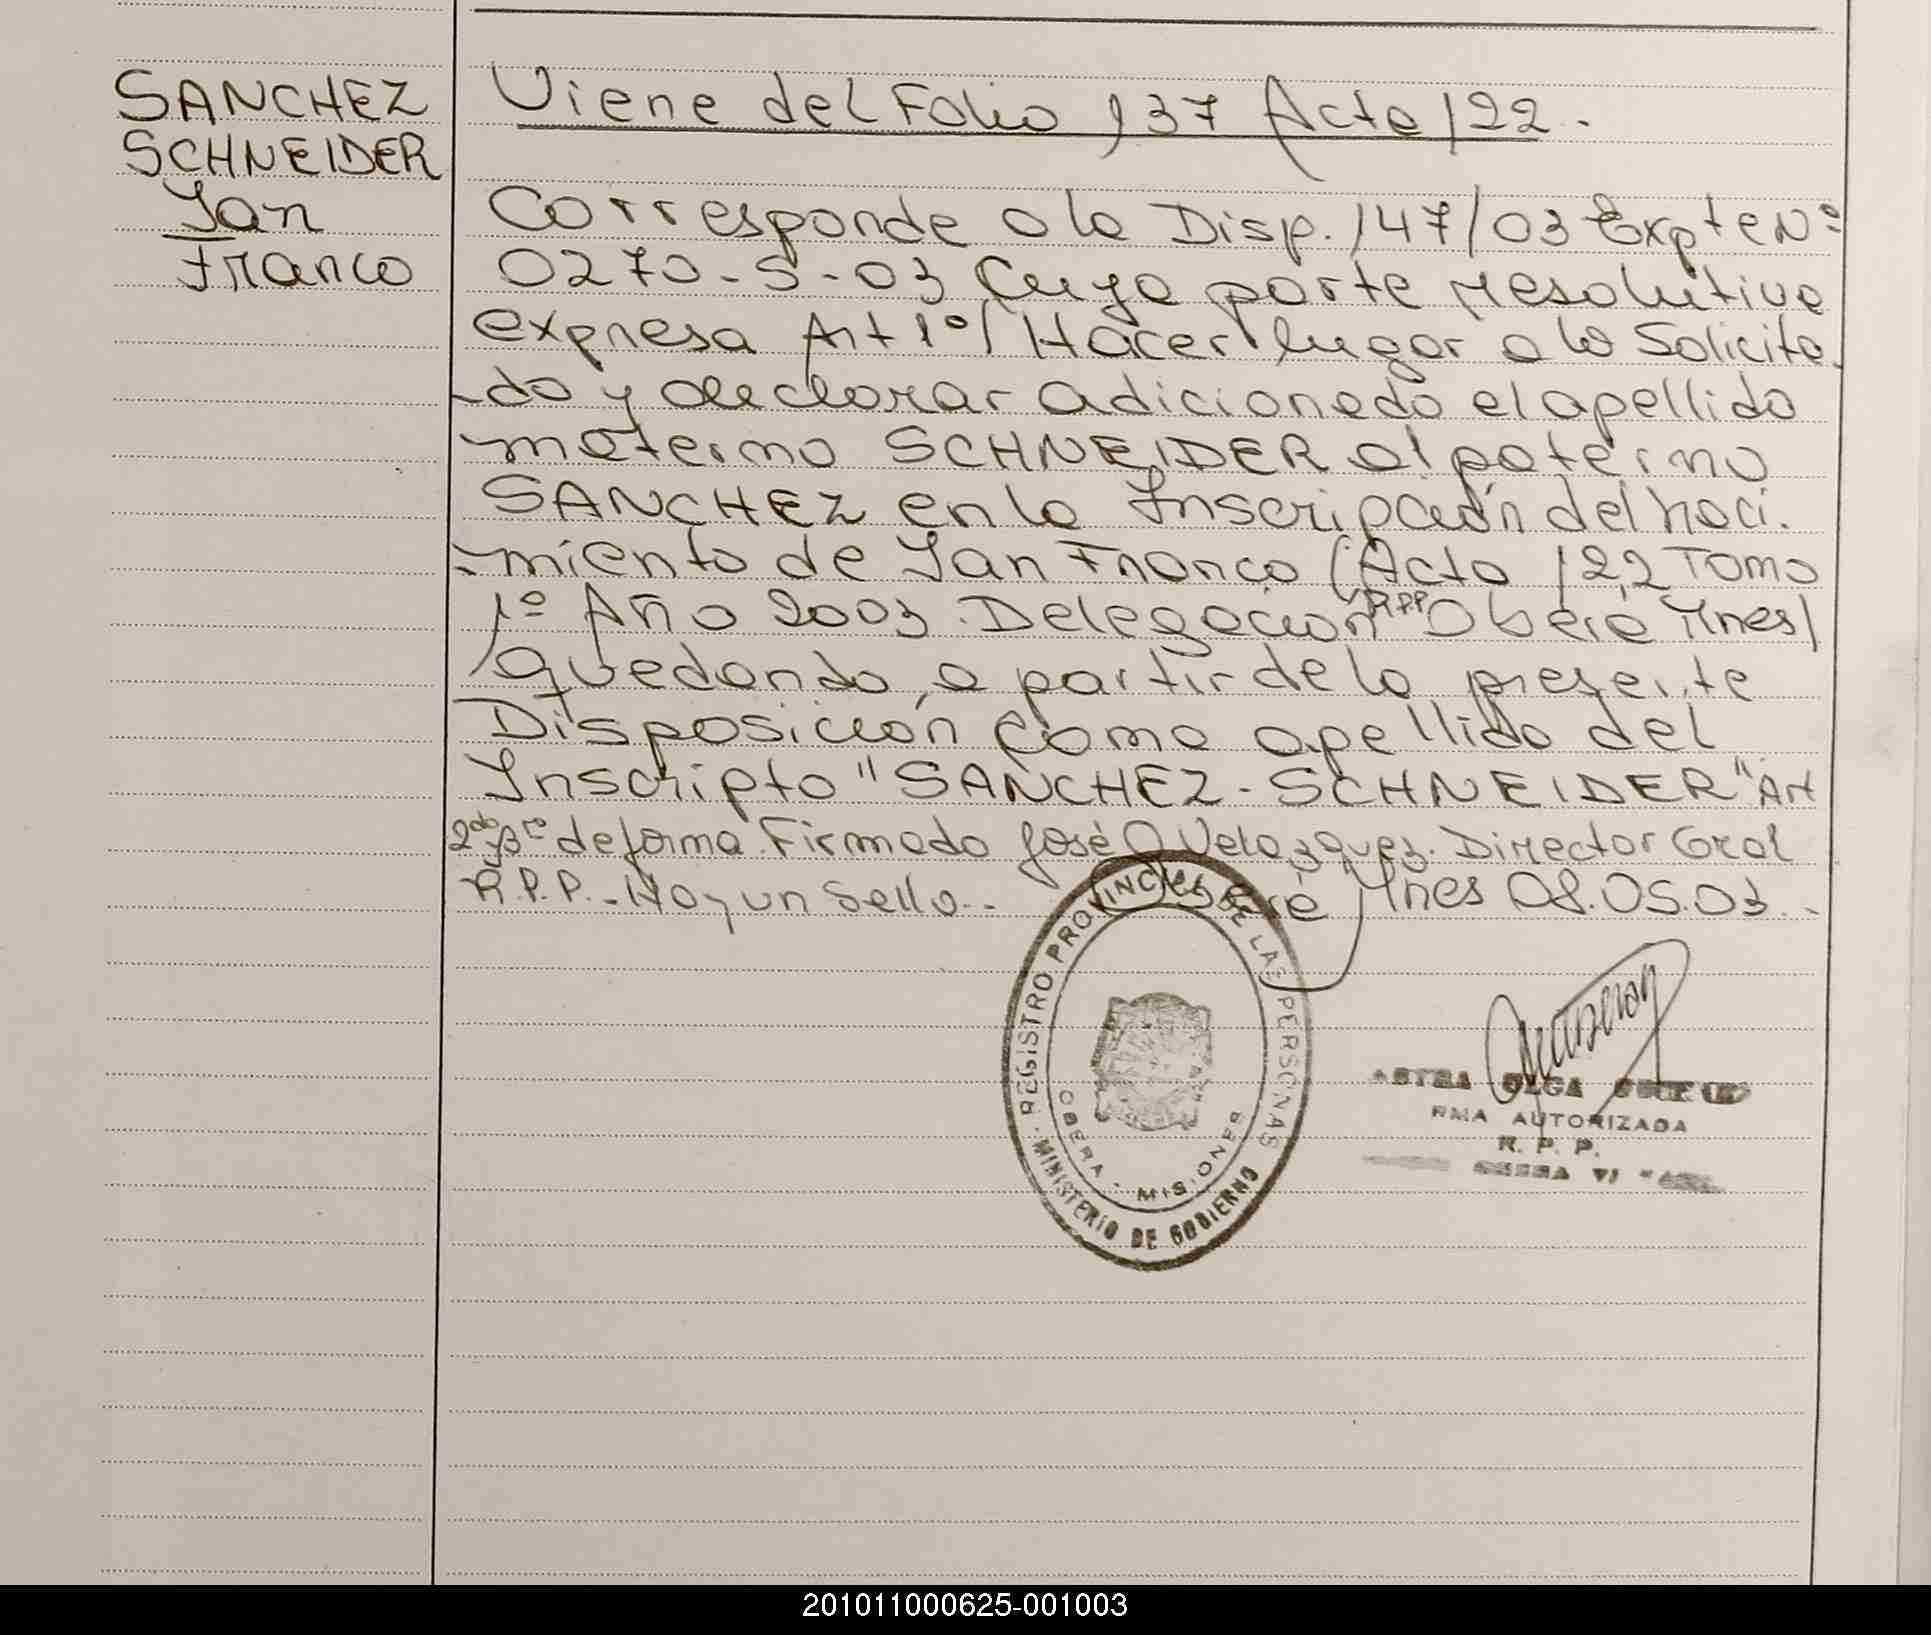 SANCHEZ
SCHNEIDER
Ian
Franco
Viene del Folio 137 Acta 122.
Corresponde a la Disp. 147/03 Expte Nº
0270-S-03 Cuya parte resolutiva
expresa Art 1º/ Hacer lugar a lo Solicita
-do y declarar adicionado el apellido
materno SCHNEIDER al paterno
SANCHEZ en la Inscripción del naci.
-miento de Ian Franco (Acta 122 Tomo
1º Año 2003. Delegación RPP Oberá Mnes/
quedando, a partir de la presente
Disposición como apellido del
Inscripto "SANCHEZ-SCHNEIDER" Art
2do y 3ro de forma. Firmado José O Velazquez. Director Gral
R.P.P.-Hay un Sello.- Oberá Mnes 08.05.03.-
REGISTRO PROVINCIAL DE LAS PERSONAS
OBERA - MISIONES
MINISTERIO DE GOBIERNO
OLGA
RMA AUTORIZADA
R. P. P.
201011000625-001003